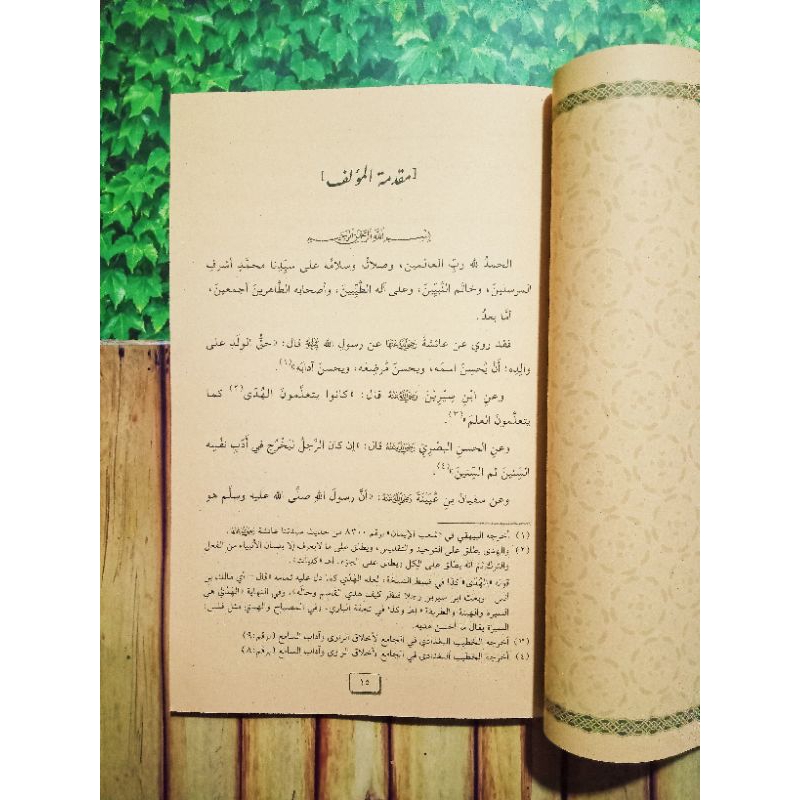 [مقدمة المؤلف]
بسم الله الرحمن الرحيم
الحمدُ لله ربِّ العالمين، وصلاتُه وسلامُه على سيِّدنا محمَّدٍ أشرفِ
المرسلينَ، وخاتَمِ النَّبيِّينَ، وعلى آله الطَّيِّبينَ، وأصحابِه الطَّاهرينَ أجمعينَ،
أمَّا بعدُ.
فقد رويَ عن عائشةَ رضي الله عنها عن رسولِ الله ﷺ قال: «حقُّ الولَدِ على
والِدِه؛ أنْ يُحسِنَ اسمَه، ويحسنَ مُرضِعَه، ويحسنَ آدابَه»(١).
وعن ابْنِ سِيْرِيْنَ رضي الله عنه قال: «كانوا يتعلَّمونَ الهُدَى(٢) كما
يتعلَّمونَ العلمَ»(٣).
وعنِ الحسنِ البصْريِّ رضي الله عنه قال: «إن كان الرَّجلُ ليَخْرُج في أدَبِ نفْسِه
السَّنتينَ ثم السِّنينَ»(٤).
وعن سفيانَ بنِ عُيَيْنَةَ رضي الله عنه: «أنَّ رسولَ اللهِ صلَّى الله عليه وسلَّم هو
(١) أخرجه البيهقي في «شعب الإيمان» برقم ٨٣٠٠ من حديث سيدتنا عائشة رضي الله عنها.
(٢) والهدى يطلق على التوحيد والتقديس، ويطلق على ما لا يعرف إلا بلسان الأنبياء من الفعل
والترك
قوله «الهُدَى» كذا في ضبط النسخة، لعله الهَدْي كما دل عليه تمامه «قال ــ أي مالك بن
أنس ــ وبعث ابن سيرين رجلا فنظر كيف هدي القاسم وحاله»، وفي النهاية «الهَدْيُ هي
السيرة والهيئة والطريقة» اهـ وكذا في تحفة القاري، وفي المصباح والهدي مثل فلس:
السيرة يقال ما أحسن هديه.
(٣) أخرجه الخطيب البغدادي في الجامع لأخلاق الراوي وآداب السامع (رقم:٩)
(٤) أخرجه الخطيب البغدادي في الجامع لأخلاق الراوي وآداب السامع (رقم:٨)
١٥